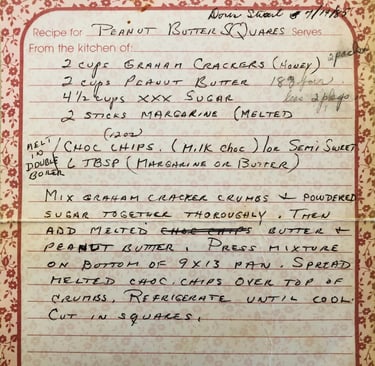 7/19/85
Recipe for PEANUT BUTTER SQUARES Serves
From the kitchen of:
2 CUPS GRAHAM CRACKERS (HONEY) 2 packs
2 CUPS PEANUT BUTTER 18 oz
4 1/2 CUPS XXX SUGAR
2 STICKS MARGARINE (MELTED
(12oz)
MELT IN DOUBLE BOILER
1 CHOC CHIPS. (MILK CHOC) OR SEMI SWEET
6 TBSP (MARGARINE OR BUTTER)
MIX GRAHAM CRACKER CRUMBS + POWDERED
SUGAR TOGETHER THOROUGHLY. THEN
ADD MELTED CHOC CHIPS BUTTER +
PEANUT BUTTER. PRESS MIXTURE
ON BOTTOM OF 9X13 PAN. SPREAD
MELTED CHOC. CHIPS OVER TOP OF
CRUMBS. REFRIGERATE UNTIL COOL.
CUT IN SQUARES.